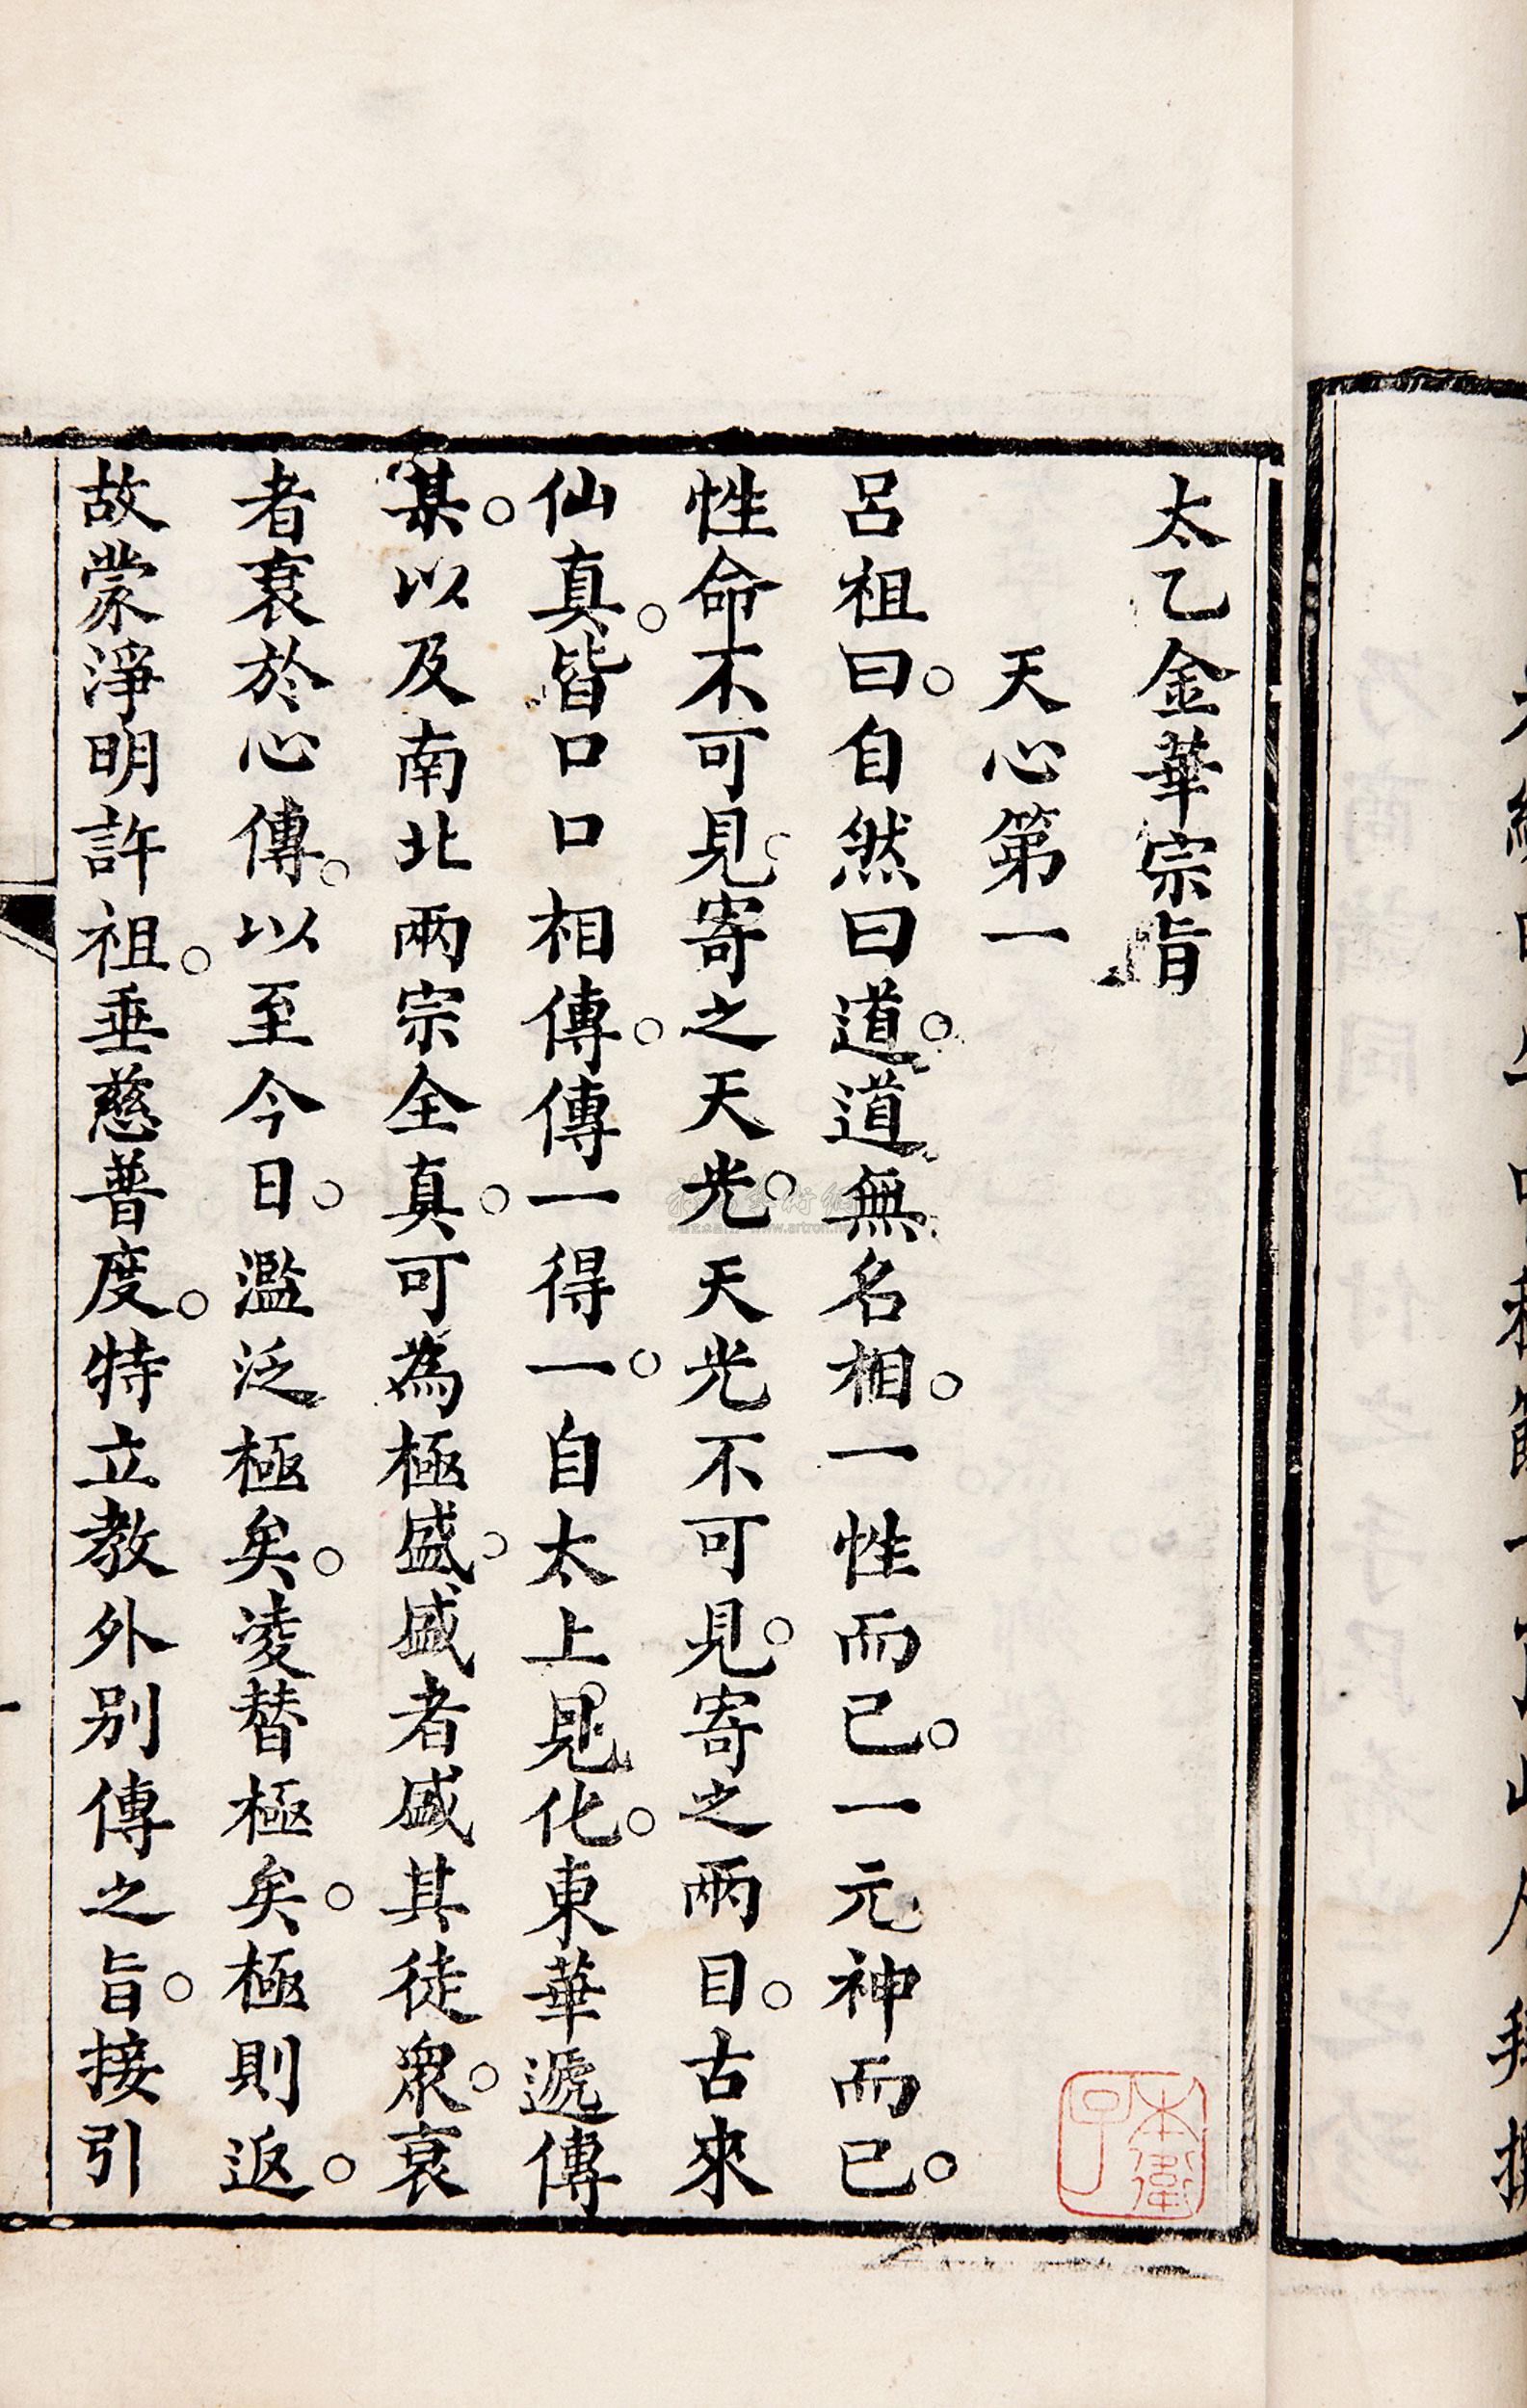 太乙金華宗旨
天心第一
呂祖曰。自然曰道。道無名相。一性而已。一元神而已。
性命不可見。寄之天光。天光不可見。寄之兩目。古來
仙真。皆口口相傳。傳一得一。自太上見化。東華遞傳
某。以及南北兩宗全真。可為極盛。盛者盛其徒衆。衰
者衰於心傳。以至今日。濫泛極矣。凌替極矣。極則返。
故蒙淨明許祖。垂慈普度。特立教外別傳之旨。接引
一